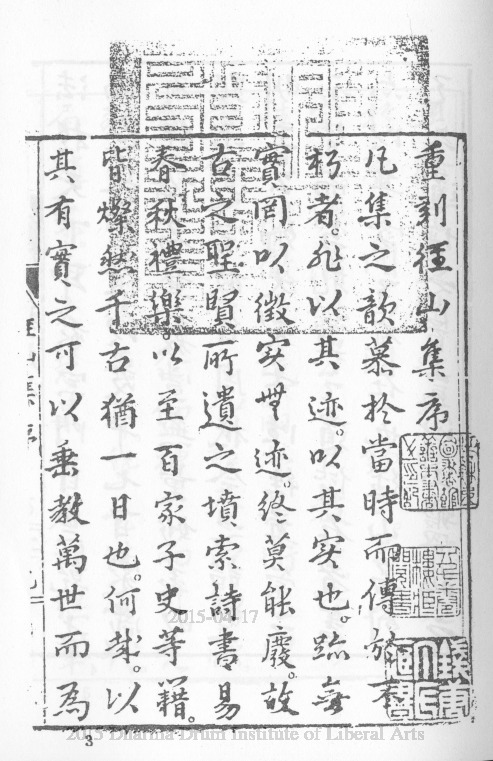 重刻徑山集序
凡集之歆慕於當時而傳於不
朽者。非以其迹。以其实也。迹無
實罔以徵实無迹。終莫能廢。故
古之聖賢所遺之墳索詩書易
春秋禮樂。以至百家子史等籍。
皆燦然千古猶一日也。何哉。以
其有實之可以垂教萬世而為
徑山集序
2015-04-17
3
2015 Dharma Drum Institute of Liberal Arts